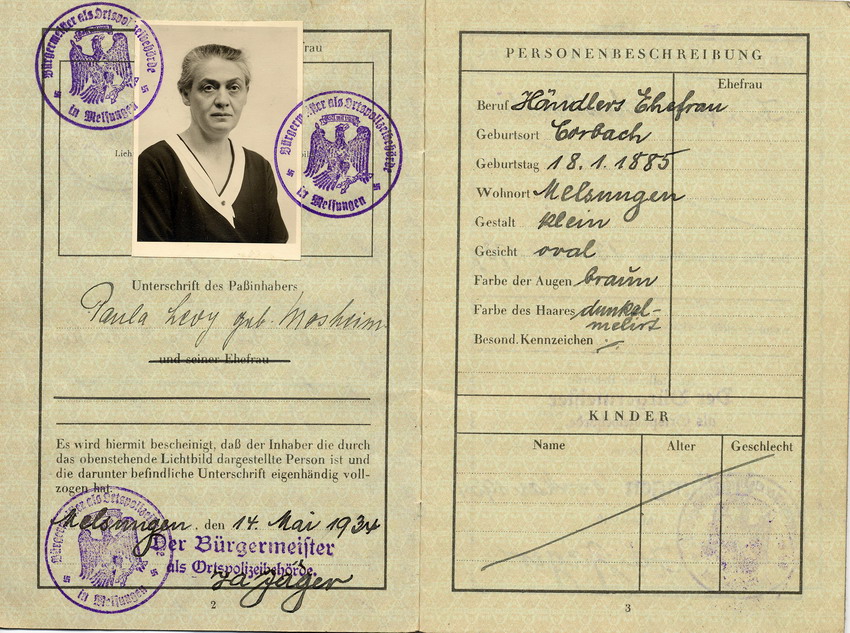 Bürgermeister als Ortspolizeibehörde
in Melsungen
rau
Bürgermeister als Ortspolizeibehörde
in Melsungen
Lich
Unterschrift des Paßinhabers
Paula Levy geb. Mosheim
und seiner Ehefrau
Es wird hiermit bescheinigt, daß der Inhaber die durch
das obenstehende Lichtbild dargestellte Person ist und
die darunter befindliche Unterschrift eigenhändig voll-
zogen hat.
Melsungen, den 14. Mai 1934
Der Bürgermeister
als Ortspolizeibehörde.
Jäger
Bürgermeister als Ortspolizeibehörde
in Melsungen
2
PERSONENBESCHREIBUNG
Ehefrau
Beruf Händlers Ehefrau
Geburtsort Corbach
Geburtstag 18.1.1885
Wohnort Melsungen
Gestalt klein
Gesicht oval
Farbe der Augen braun
Farbe des Haares dunkel-
melirt
Besond. Kennzeichen ./.
KINDER
Name Alter Geschlecht
3